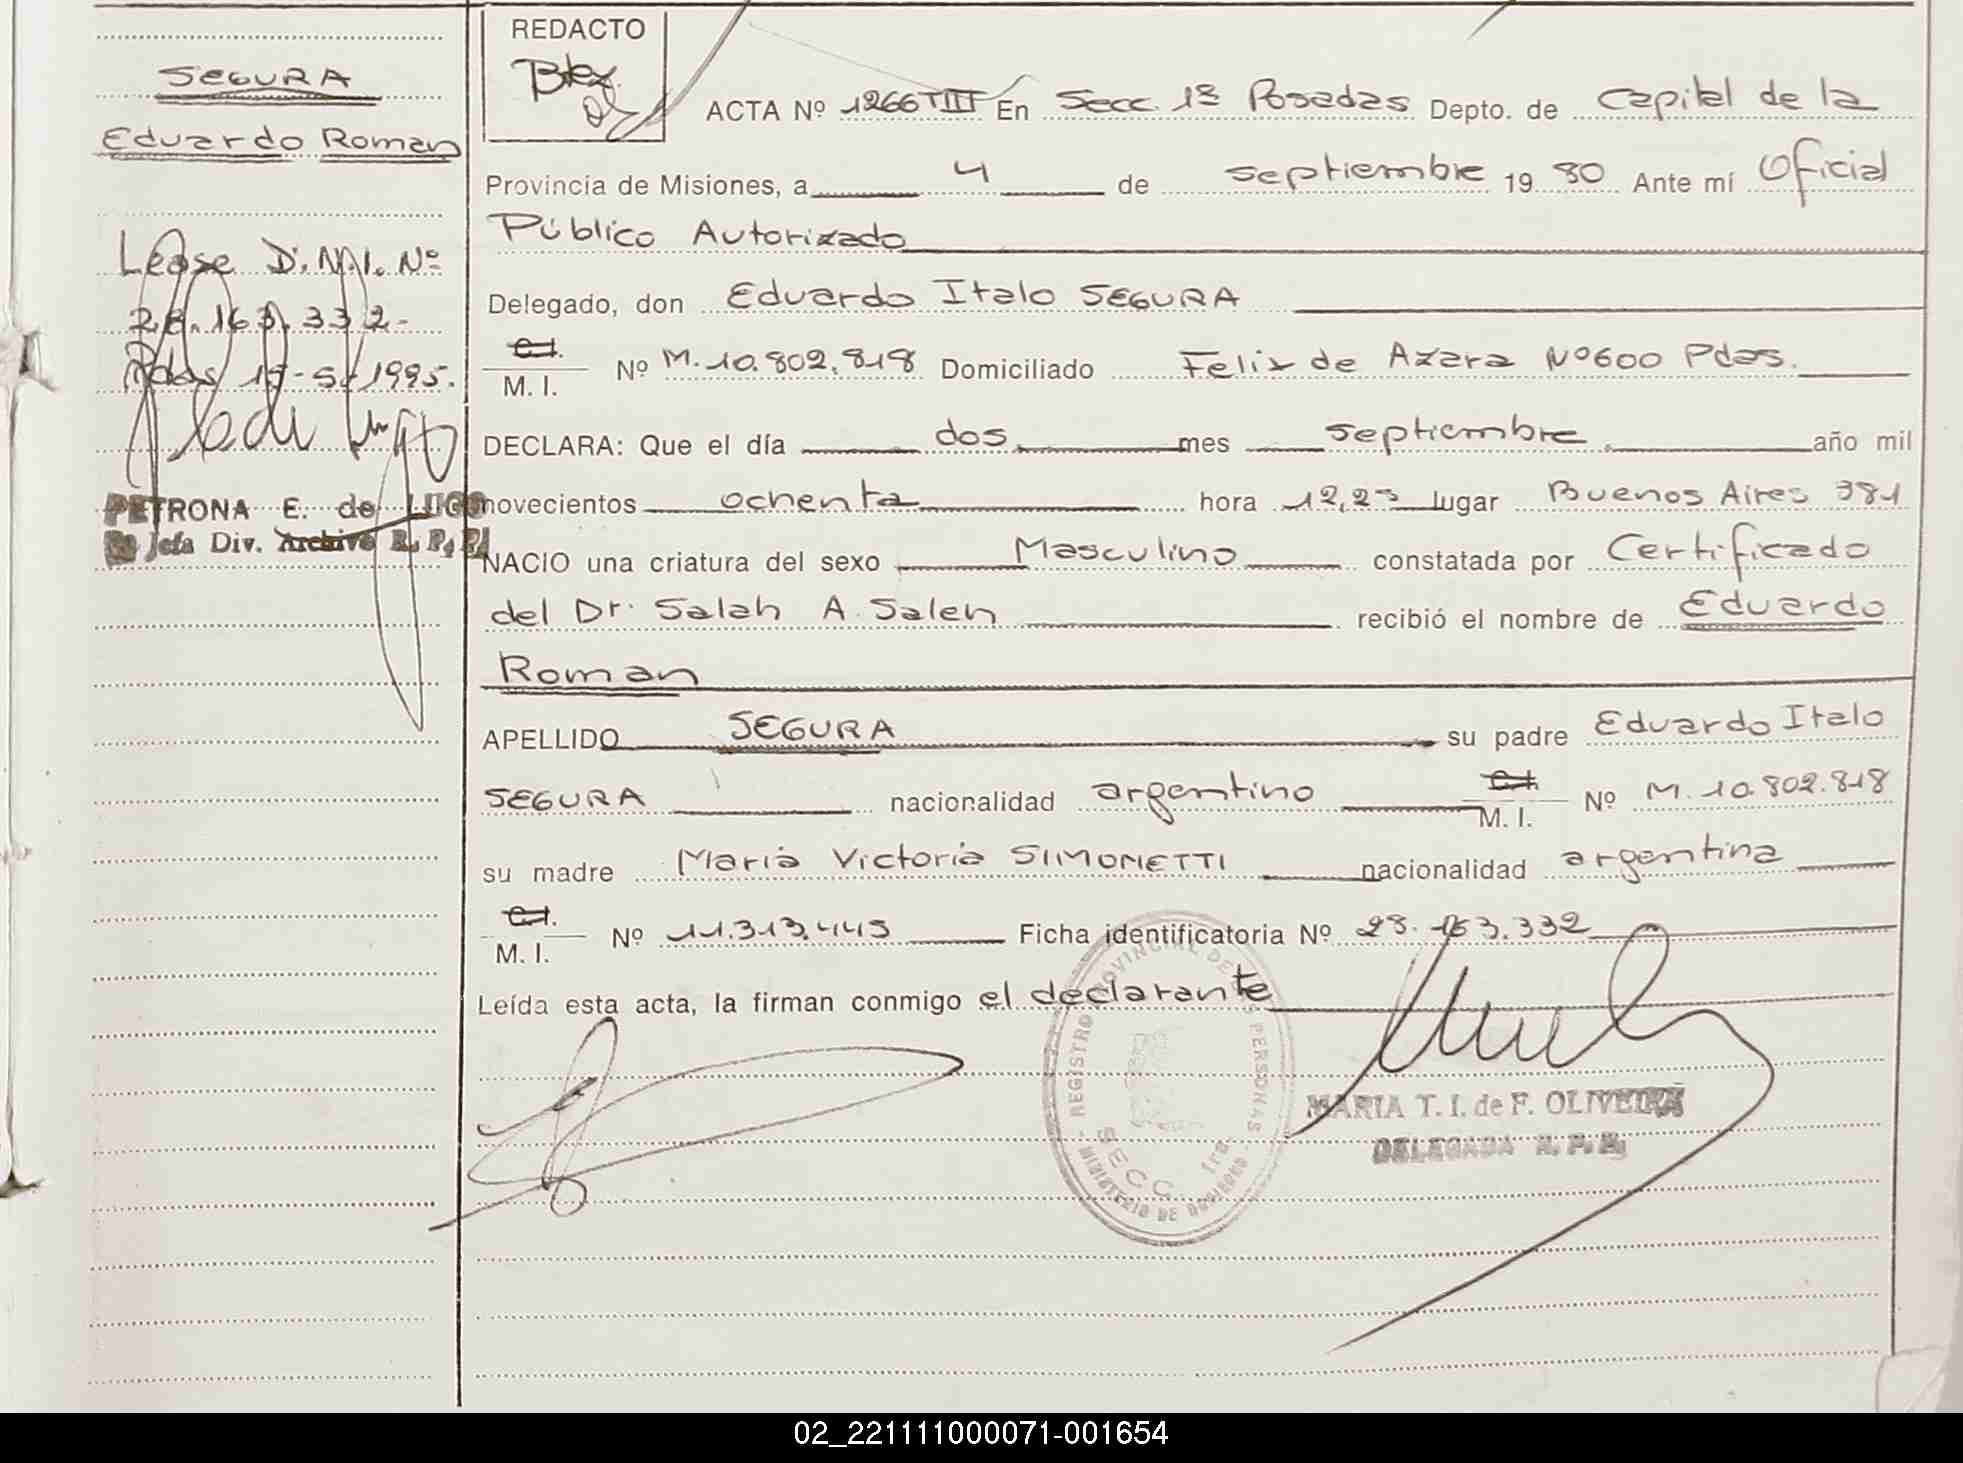 SEGURA
Eduardo Roman
Lease D.N.I. Nº
28.163.332-
Pdas 19-5-1995.
PETRONA E. de LUGO
Jefa Div. Archivo R. P. P.
REDACTO
ACTA Nº 1266 TIII En Secc. 1ª Posadas Depto. de Capital de la
Provincia de Misiones, a 4 de septiembre 19 80 Ante mí Oficial
Público Autorizado
Delegado, don Eduardo Italo SEGURA
C.I. M. I. Nº M.10.802.818 Domiciliado Felix de Azara Nº600 Pdas.
DECLARA: Que el día dos mes septiembre año mil
novecientos ochenta hora 12,25 lugar Buenos Aires 381
NACIO una criatura del sexo Masculino constatada por Certificado
del Dr. Salah A. Saleh recibió el nombre de Eduardo
Roman
APELLIDO SEGURA su padre Eduardo Italo
SEGURA nacionalidad argentino C.I. M. I. Nº M.10.802.818
su madre Maria Victoria SIMONETTI nacionalidad argentina
C.I. M. I. Nº 11.313.445 Ficha identificatoria Nº 28.163.332
Leída esta acta, la firman conmigo el declarante
REGISTRO PROVINCIAL DE LAS PERSONAS
MINISTERIO DE GOBIERNO
SECC 1ra.
MARIA T. I. de F. OLIVEIRA
DELEGADA R. P. P.
02_221111000071-001654